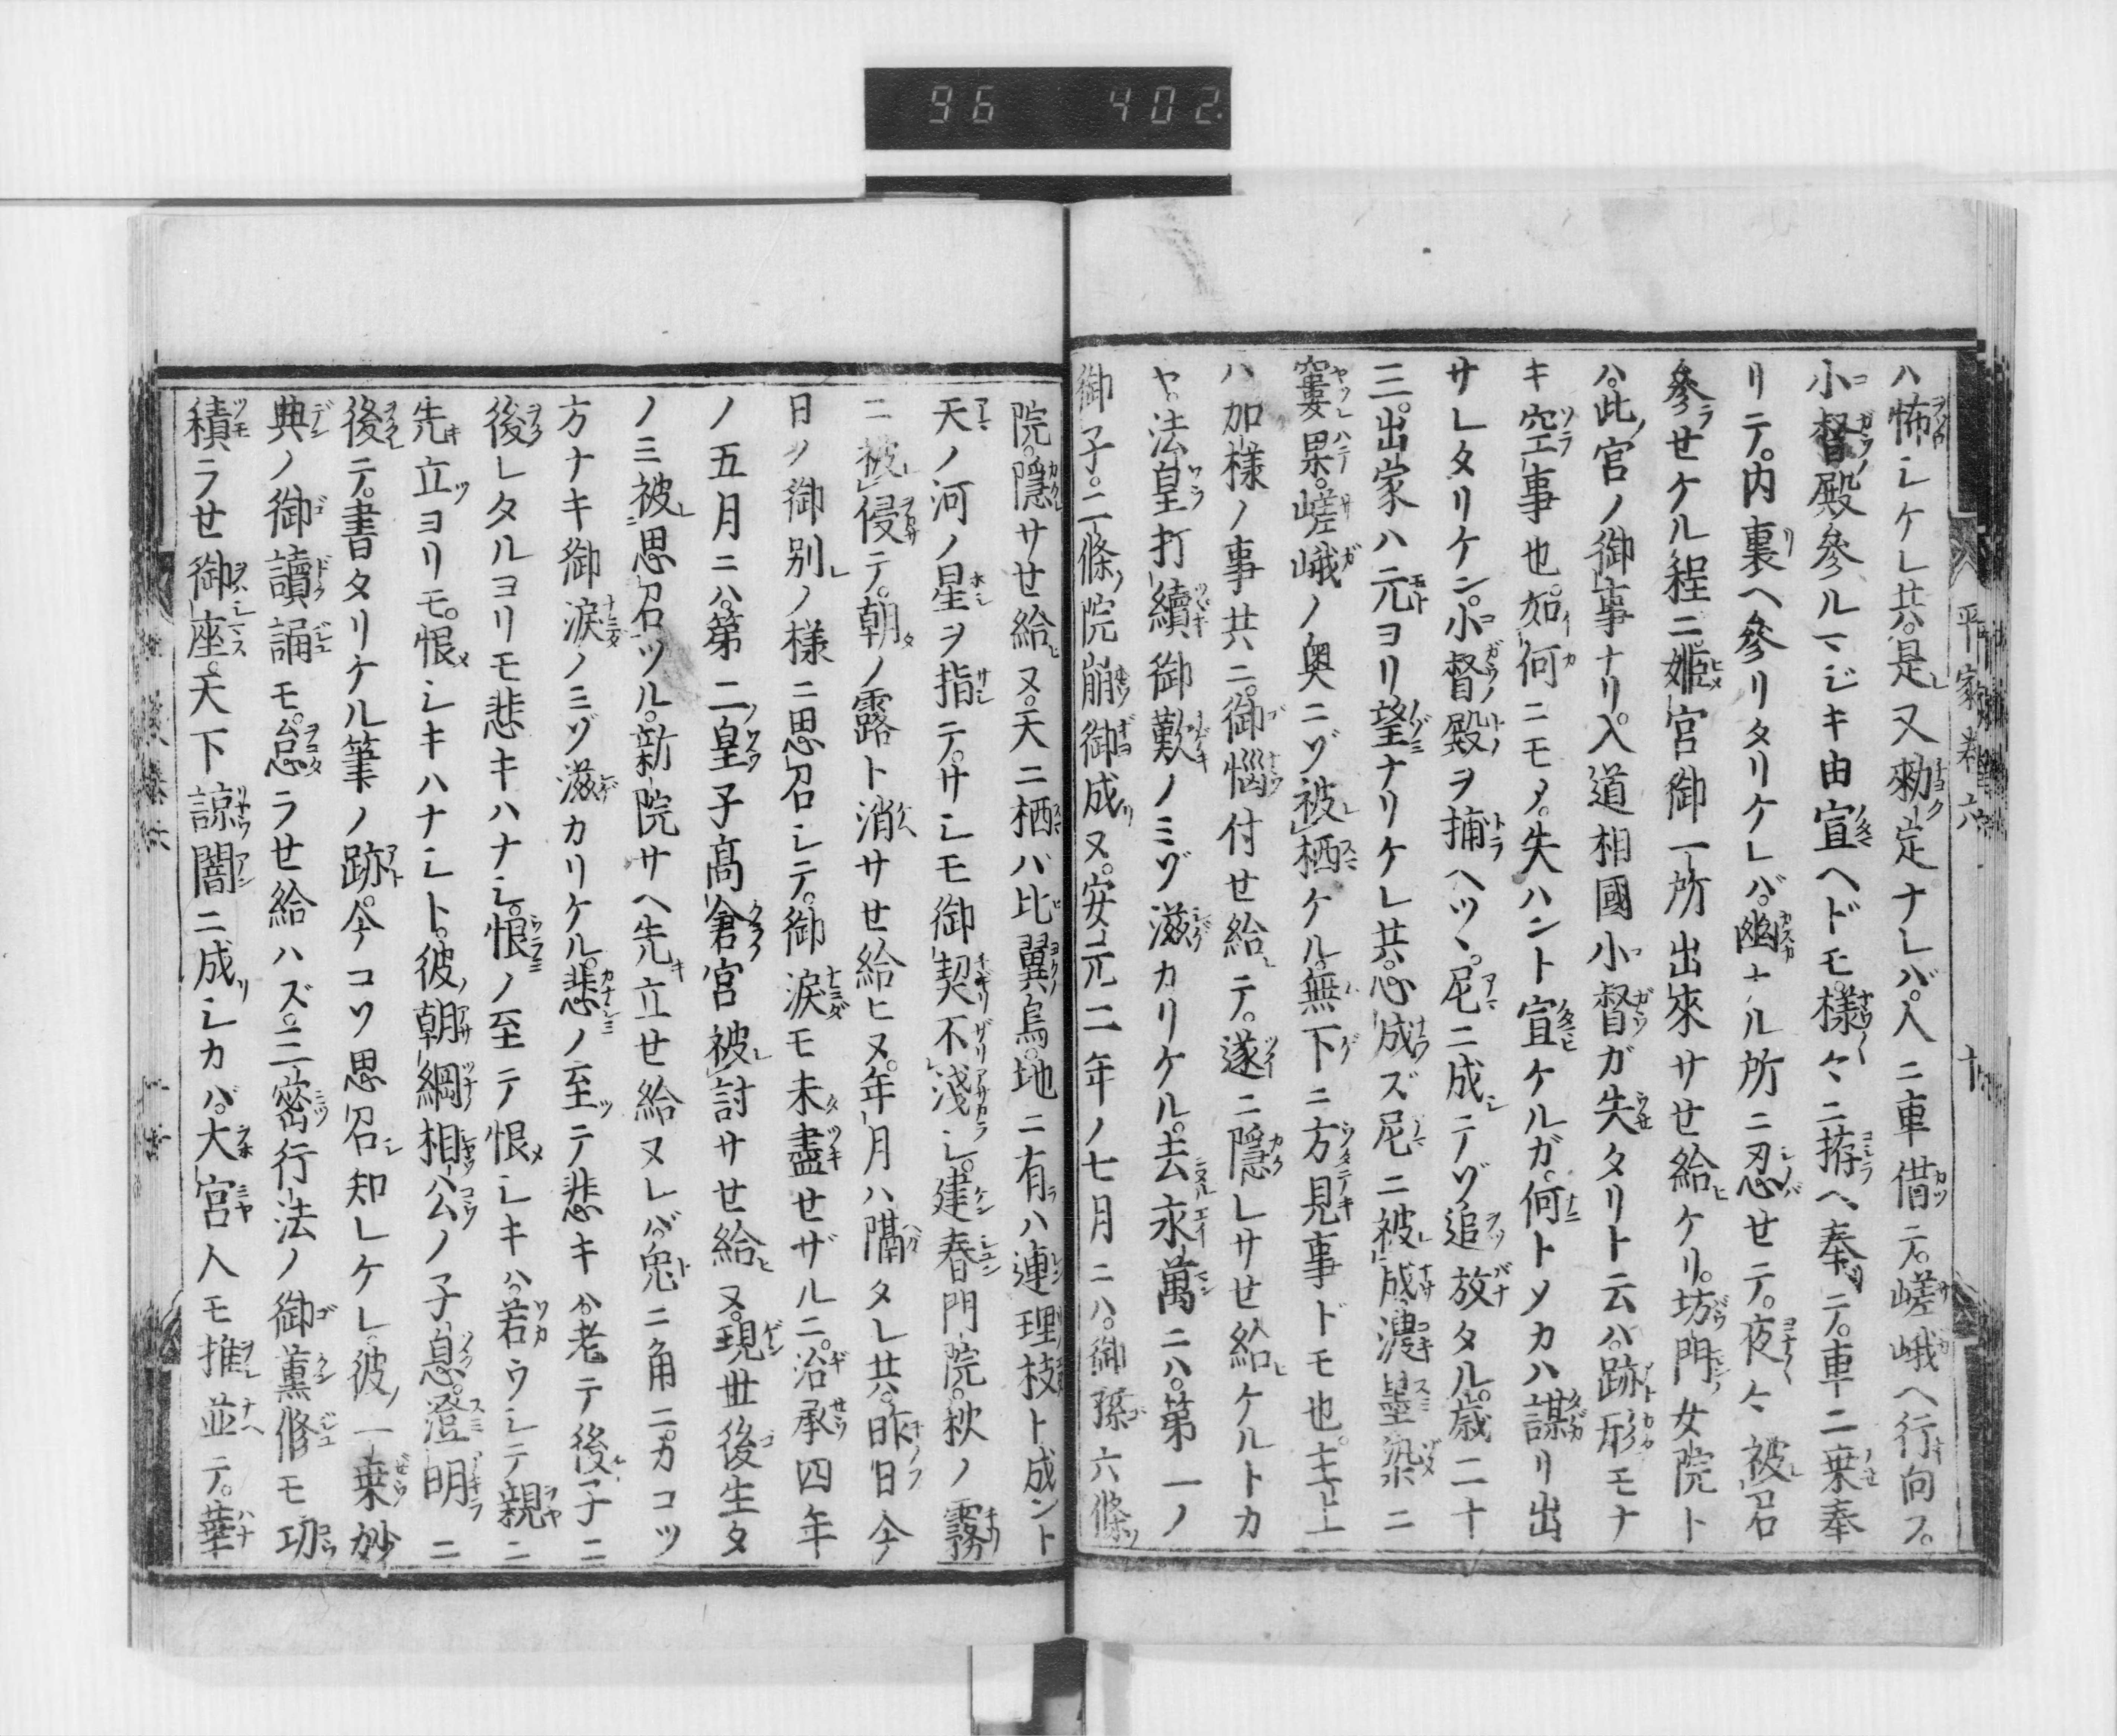 96 402
平家巻六
十
ハ怖シケレ共。是又勅定ナレバ。人ニ車借テ。嵯峨ヘ行向フ。
小督殿參ルマジキ由宣ヘドモ。樣々ニ拵ヘ奉テ。車ニ乗奉
リテ。内裏ヘ參リタリケレバ。幽ナル所ニ忍セテ。夜々被召
參ラセケル程ニ。姫宮御一所出來サセ給ケリ。坊門女院ト
ハ。此宮ノ御事ナリ。入道相國小督ガ失タリト云ハ。跡形モナ
キ空事也。如何ニモメ。失ハント宣ケルガ。何トメカハ謀リ出
サレタリケン。小督殿ヲ捕ヘツヽ。尼ニ成テゾ追放タル。歳二十
三。出家ハ元ヨリ望ナリケレ共。心成ズ尼ニ被成。濃墨染ニ
窶果。嵯峨ノ奥ニゾ被栖ケル。無下ニ方見事ドモ也。主上
ハ加樣ノ事共ニ。御惱付セ給テ。遂ニ隱レサセ給ケルトカ
ヤ。法皇打續御歎ノミゾ滋カリケル。去永萬ニハ。第一ノ
御子。二條院崩御成ヌ。安元二年ノ七月ニハ。御孫六條
院。隱サセ給ヌ。天ニ栖バ比翼鳥。地ニ有ハ連理枝ト成ント
天ノ河ノ星ヲ指テ。サシモ御契不淺シ。建春門院。秋ノ霧
ニ被侵テ。朝ノ露ト消サセ給ヒヌ。年月ハ隔タレ共。昨日今
日ノ御別ノ樣ニ思召シテ。御淚モ未盡セザルニ。治承四年
ノ五月ニハ。第二皇子高倉宮被討サセ給ヌ。現世後生タ
ノミ被思召ツル。新院サヘ先立セ給ヌレバ。兎ニ角ニ。カコツ
方ナキ御淚ノミゾ滋カリケル。悲ノ至テ悲キハ。老テ後子ニ
後レタルヨリモ悲キハナシ。恨ノ至テ恨シキハ。若ウシテ親ニ
先立ヨリモ。恨シキハナシト。彼朝綱相公ノ子息。澄明ニ
後テ。書タリケル筆ノ跡。今コソ思召知レケレ。彼一乗妙
典ノ御讀誦モ。怠ラセ給ハズ。三密行法ノ御薫修モ功
積ラセ御座。天下諒闇ニ成シカバ。大宮人モ推並テ。華